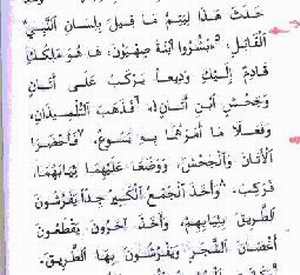 حَدَثَ هَذَا لِيَتِمَّ مَا قِيلَ بِلِسَانِ ٱلنَّبِيِّ
ٱلْقَائِلِ: ٥«بَشِّرُوا ٱبْنَةَ صِهْيَوْنَ: هَا هُوَ مَلِكُكِ
قَادِمٌ إِلَيْكِ وَدِيعاً يَرْكَبُ عَلَى أَتَانٍ
وَجَحْشٍ ٱبْنِ أَتَانٍ!» ٦فَذَهَبَ ٱلتِّلْمِيذَانِ،
وَفَعَلَا مَا أَمَرَهُمَا بِهِ يَسُوعُ، ٧فَأَحْضَرَا
ٱلْأَتَانَ وَٱلْجَحْشَ، وَوَضَعَا عَلَيْهِمَا ثِيَابَهُمَا،
فَرَكِبَ. ٨وَأَخَذَ ٱلْجَمْعُ ٱلْكَبِيرُ جِدّاً يَفْرُشُونَ
ٱلطَّرِيقَ بِثِيَابِهِمْ، وَأَخَذَ آخَرُونَ يَقْطَعُونَ
أَغْصَانَ ٱلشَّجَرِ وَيَفْرُشُونَ بِهَا ٱلطَّرِيقَ.